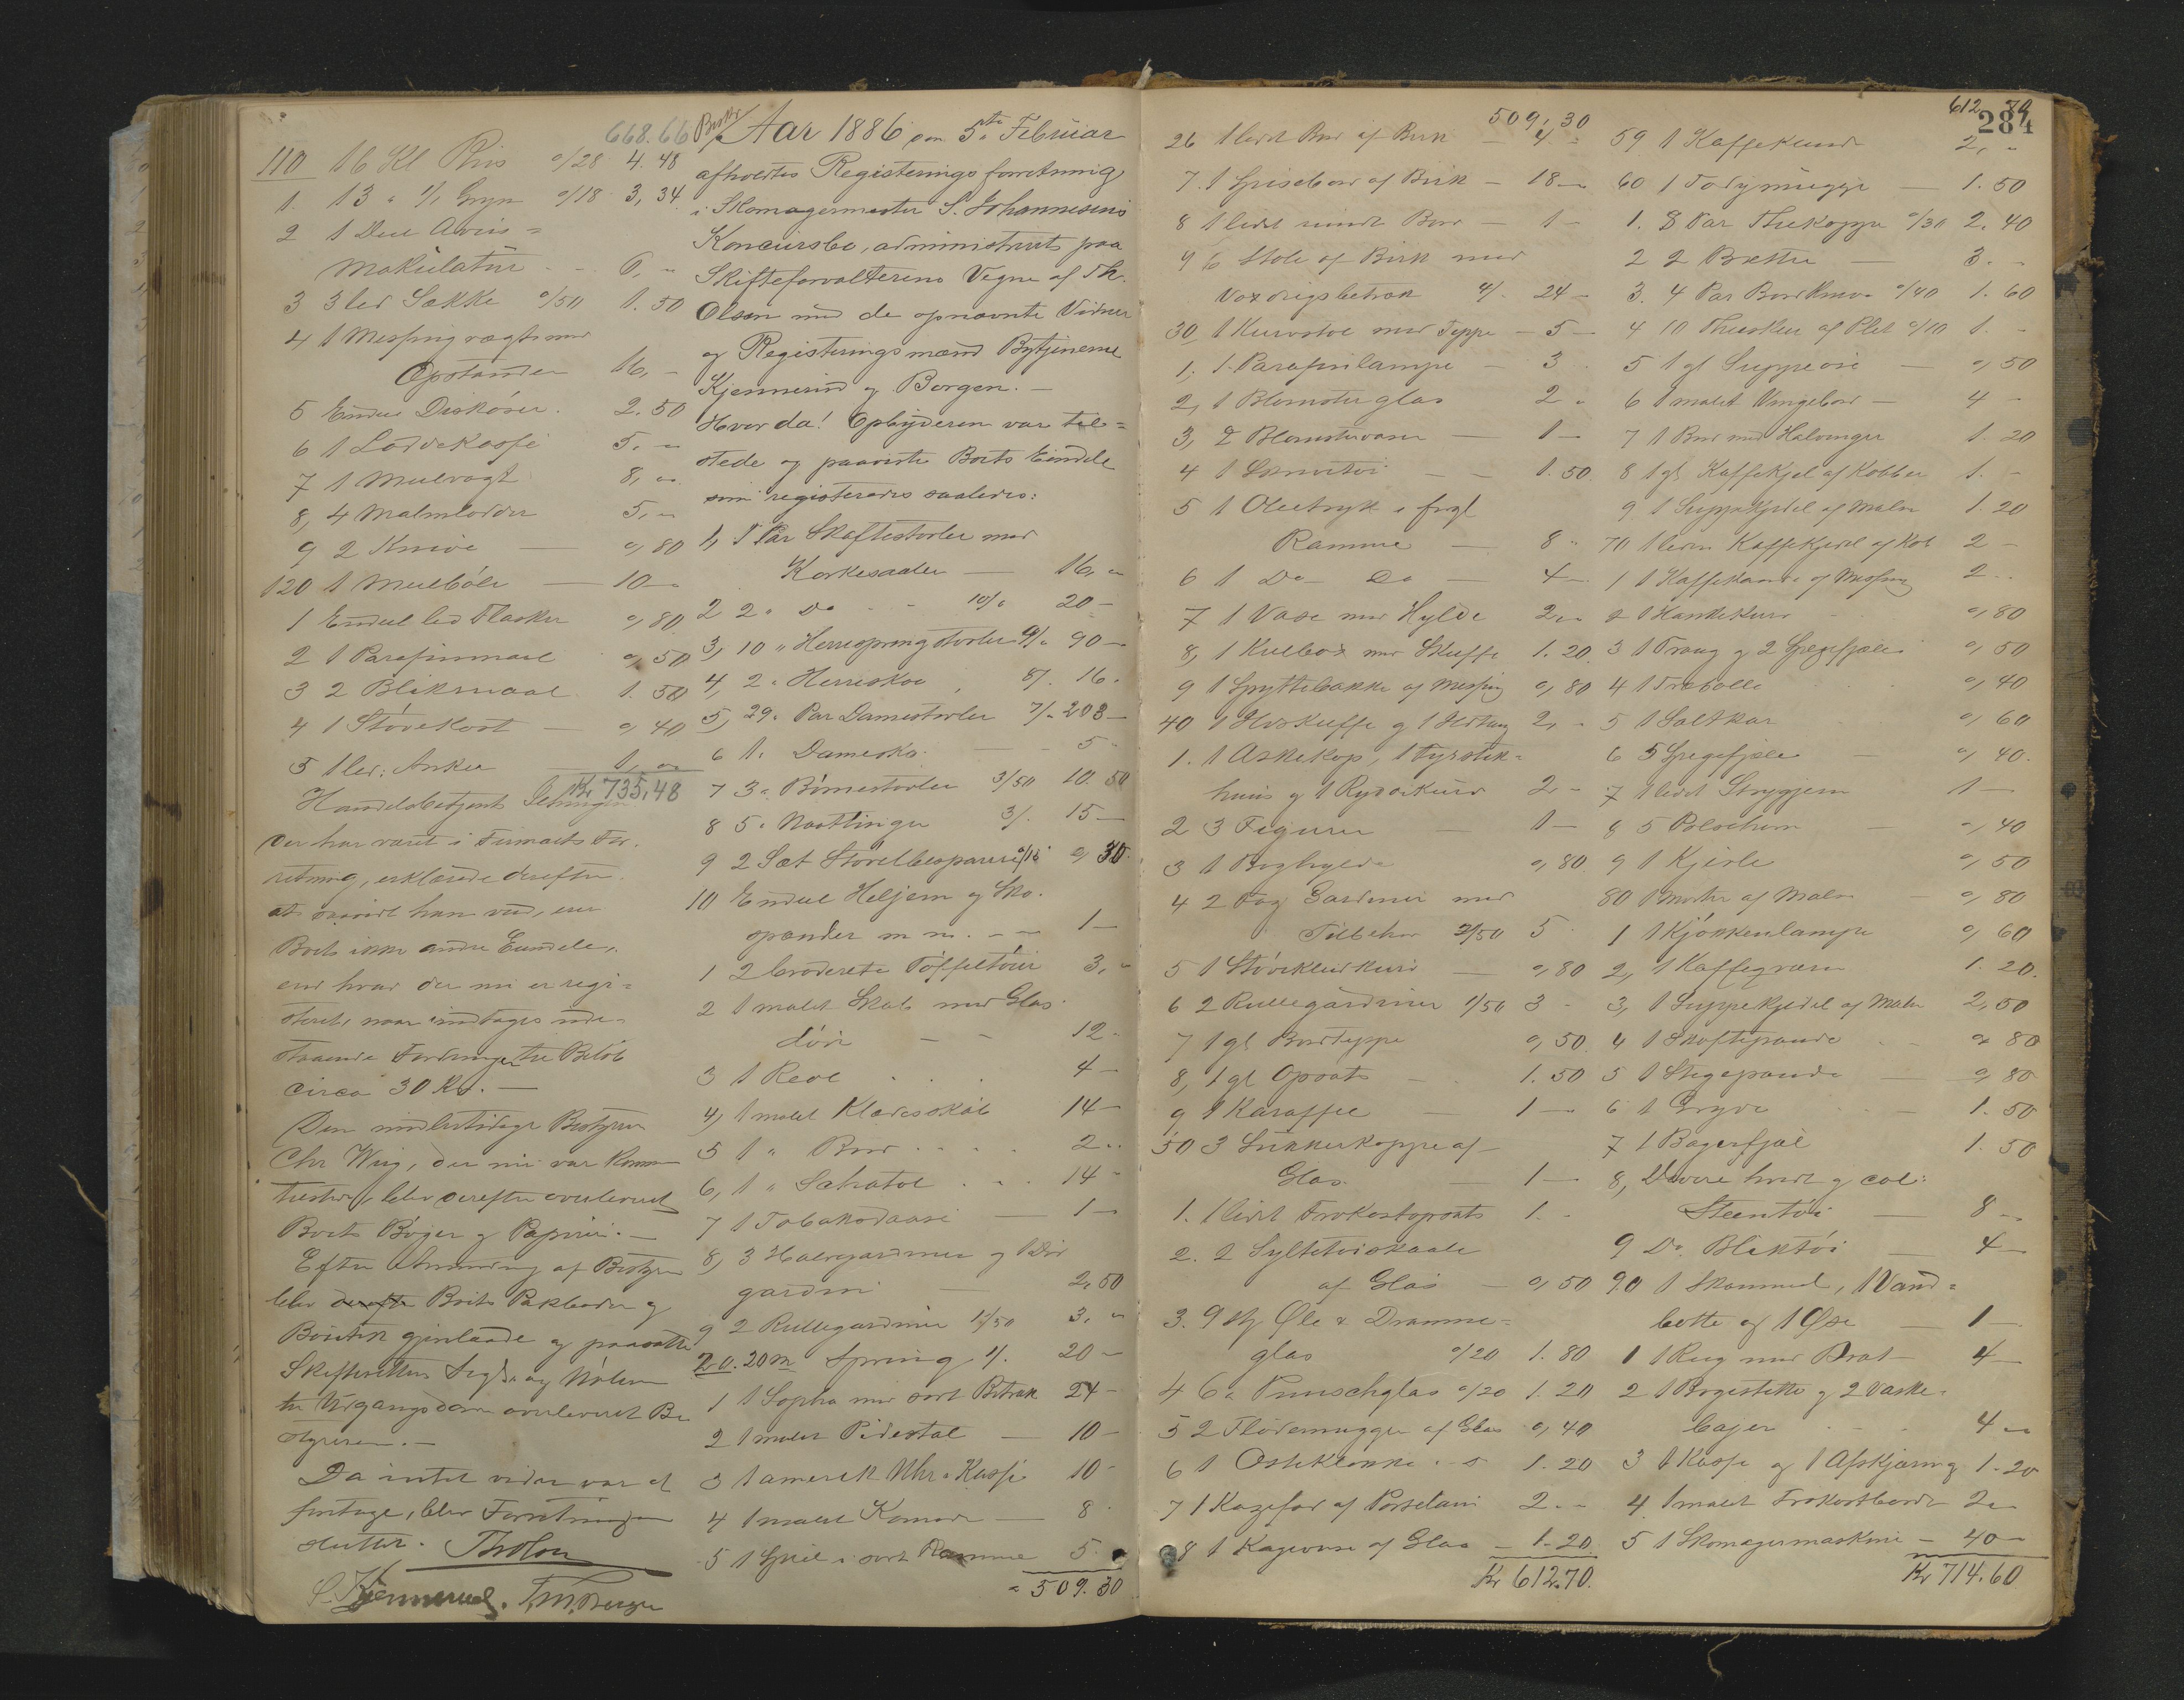 668.66
110 16 Kl Ris a/28 4.48
1. 13 " 1/1 Gryn a/18 3,34
2 1 Deel Avis=
Makulatur - - 6, "
3 3 led Sække a/50 1.50
4 1 Messingvægt med
Opstander 16, -
5 Endeel Disköser. 2.50
6 1 Loddekasse 5. -
7 1 Meelvægt 8, "
8, 4 Malmlodder 5, "
9 2 Knive — o,80
120 1 Meelböle — 10 -
1 Endeel led Flasker o,80
2 1 Parafinmaal o,50
3 2 Blikmaal 1.50
4 1 Stövekost — o,40
5 1 led: Anker 1, "
Kr 735,48
Handelsbetjent
der har været i Firmaets For=
retning, erklærede derefter
at saavidt han ved, eier
Boets ikke andre Eiendele,
end hvad der nu er regi=
streret, naar undtages ude=
staaende Fordringer til Beløb
circa 30 Kr. —
Den midlertidige Bestyrer
Chr Wiig, der nu var kommen
tilstede, blev derefter overleveret
Boets Böger og Papirer. —
Efter Anmodning af Bestyreren
blev derefter Boets Pakboder og
Boutik gjenlaaste og paasatte
Skifterettens Segl og Nölen
til Udgangsdören overleveret Be
styreren. —
Da intet videre var at
foretage, blev Forretningen
sluttet. ThOlsen
C. Kjennerud. T. M. Borgen
Aar 1886 den 5te Februar
afholdtes Registeringsforretning
i Skomagermester S. Johannesens
Konkursbo, administreret paa
Skifteforvalterens Vegne af Th.
Olsen med de opnævnte Vidner
og Registeringsmænd Bytjenerne
Kjennerud og Borgen. —
Hvor da! Opbyderen var til=
stede og paaviste Boets Eiendele
som registreredes saaledes:
1, 1 Par Skaftestövler med
Korkesaaler — 16, "
2 2 " Do - - 10/" 20 -
3, 10 " Herrespringstövler 9/" 90 —
4, 2 " Herresko , 8/. 16 "
5, 29 " Par Damestövler 7/" 203 —
6 1 " Damesko. — - 5 "
7 3 " Börnestövler 3/50 10.50
8 5 " Nastlinger 3/. 15 —
9 2 Sæt Stövelbesparere a/15 o,30
10 Endeel Heljern og Sko.
spænder m m. - — 1 —
1 2 broderete Töffeltöier 3, "
2 1 malet Skab med Glas
dör — - 12 -
3 1 Reol . . . 4 —
4, 1 malet Klædesskab 14 —
5 1 " Bord . . . . 2 ..
6, 1 " Schatol . . . 14 -
7 1 Tobaksdaase — 1 —
8, 3 Halvgardiner og 1 Dör
gardin — 2,50
9 2 Rullegardiner 1/50 3, "
20. 20 m Spring 1/. 20 —
1 1 Sopha med sort Betræk 24 —
2 1 malet Pidestal — 10 —
3 1 amerik Uhr i Kasse 10 -
4 1 malet Komode — 8 -
5 1 Speil i sort Ramme 5 -
" 509.30
509,30
26 1 lidet Bord af Birk — 4 "
7. 1 Spisebord af Birk — 18 —
8 1 lidet rundt Bord — 1 —
9 6 Stole af Birk med
Voxdugsbetræk 4/. 24 —
30 1 Kurvstol med Teppe — 5 —
1, 1 Parafinlampe — 3
2, 1 Blomsterglas 2 "
3, 2 Blomstervaser — 1 —
4 1 — - 1.50
5 1 Olietryk i forgl
Ramme — 8 "
6 1 Do Do — 4 —
7 1 Vase med Hylde 2 "
8, 1 Kulbox med Skuffe 1.20
9 1 Spyttebakke af Messing o,80
40 1 Ildskuffe og 1 Ildtang 2, -
1. 1 Askekop, 1 Fyrstik=
huus og 1 Kurv 2 —
2 3 Figurer — 1 —
3 1 Boghylde o,80
4 2 Fag Gardiner med
Tilbehør 2/50 5
5 1 Stövekludkurv — o,80
6 2 Rullegardiner 1/50 3 -
7 1 gl Bordteppe o,50
8, 1 gl Opsats — . 1.50
9 1 Karaffel — 1 —
50 3 Sukkerkopper af
Glas. — 1 —
1. 1 lidet Frokostopsats 1. -
2. 2 Syltetöiskaale
af Glas — o,50
3. 9 Stk Øle & Dramme=
glas a/20 1.80
4 6 " Punschglas a/20 1.20
5 2 Flödemugger af Glas o,40
6 1 Osteklokke " - s 1.20
7 1 Kagefad af Porselain 2 - -
8 1 Kagevase af Glas — 1.20
Kr 612.70.
612 70
284
59 1 Kaffekande 2, "
60 1 Todymugge — 1.50
1. 8 Par Thekopper a/30 2.40
2 2 Brætter — 3. -
3. 4 Par Bordknive a/40 1.60
4 10 Theskeer af Plet a/10 1. -
5 1 gl Suppeøse — o,50
6 1 malet Vingebord — 4 -
7 1 Bord med Halvringer 1.20
8 1 gl Kaffekjel af Kobber 1. -
9 1 Suppekjedel af Malm 1.20
70 1 liden Kaffekjedel af Kob 2 -
1 1 Kaffekande af Messing 2 -
2 1 Hankekurv - o,80
3 1 Traug og 2 Spegefjæle o,50
4 1 Træbolle . . o,40
5 1 Saltkar o,60
6 5 Spegefjæle — o,40.
7 1 lidet Strygjern 1 —
8 5 — o,40
9 1 Kjevle o,50
80 1 Morter af Malm — o,80
1 1 Kjökkenlampe o,60
2, 1 Kaffeqværn 1.20.
3, 1 Suppekjedel af Malm 2,50
4 1 Skaftepande . . o,80
5 1 Stegepande — o,80
6 1 Gryde . . — 1.50
7 1 Bagerfjæl 1.50
8, Diverse hvidt og col:
Steentöi — 8 —
9 Do Bliktöi — 4 —
90 1 Skammel, 1 Vand=
bøtte og 1 Øse — 1 —
1 1 Rug med Brot — 4 —
2 1 Brygebøtte og 2 Vaske=
baljer . . . 4 "
3 1 Kasse og 1 Afskjæring 1.20
4 1 malet Frokostbord 2 "
5 1 Skomagermaskine — 40 —
Kr 714.60